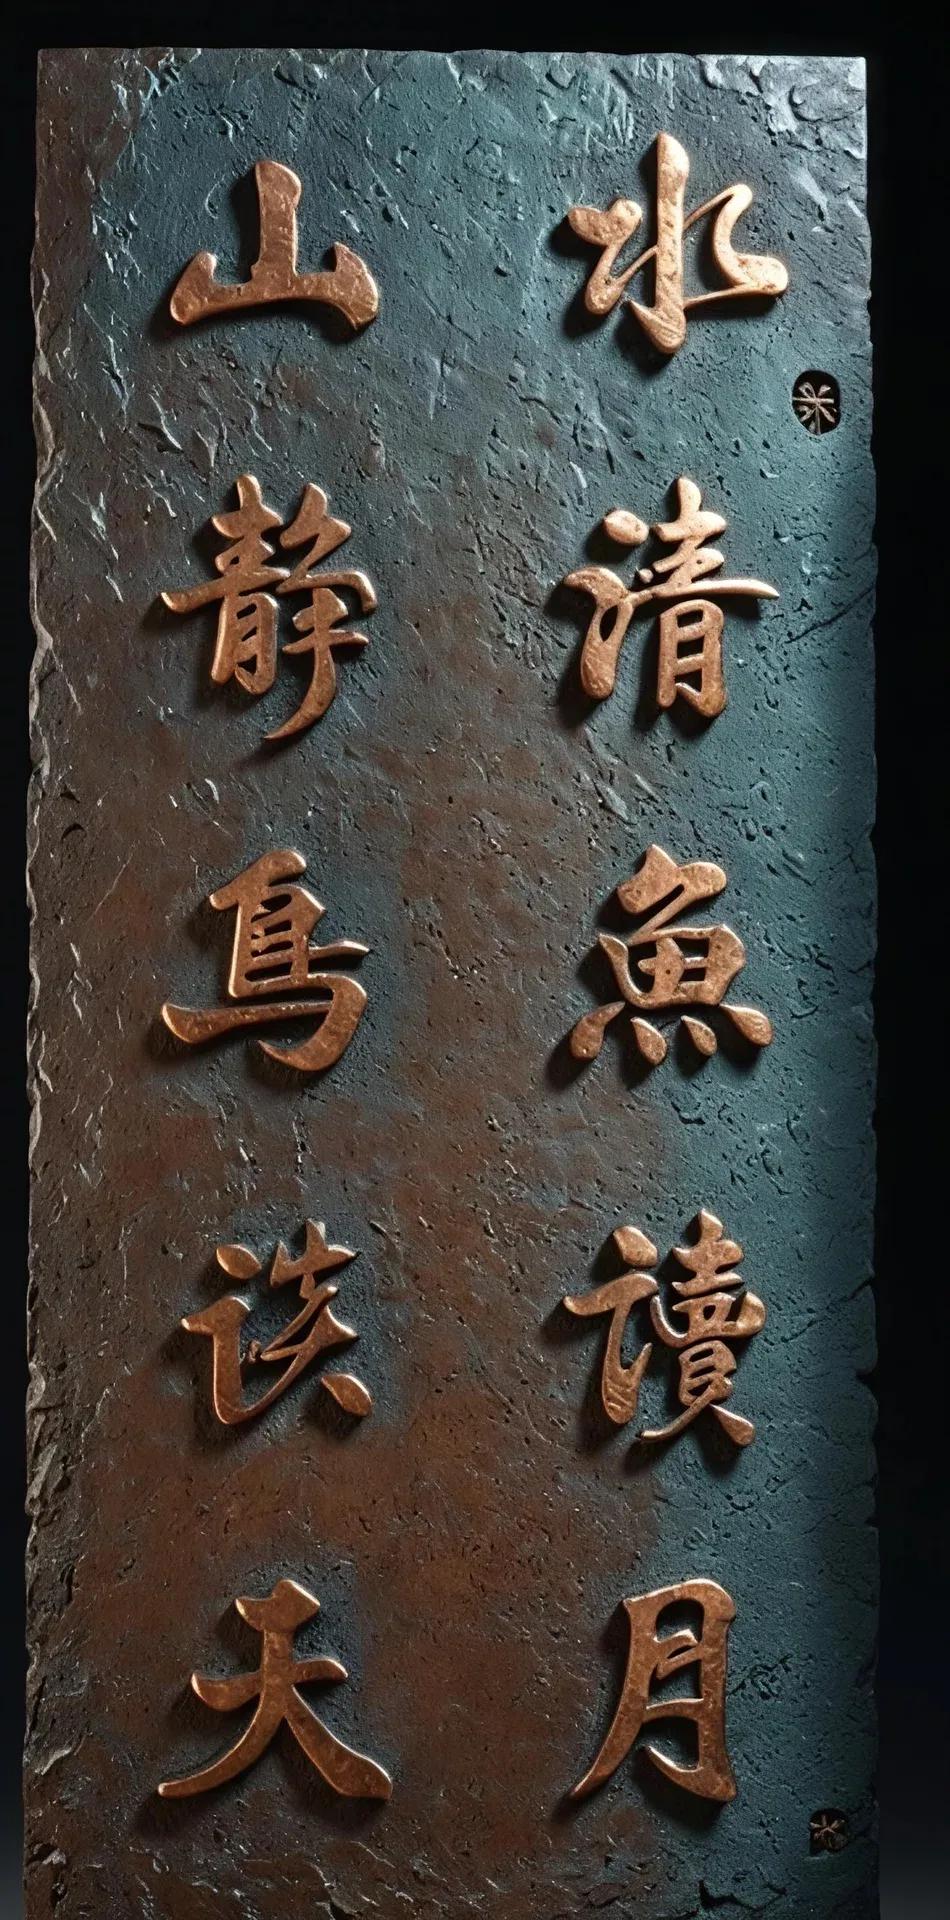 水清魚讀月
山静鳥談天